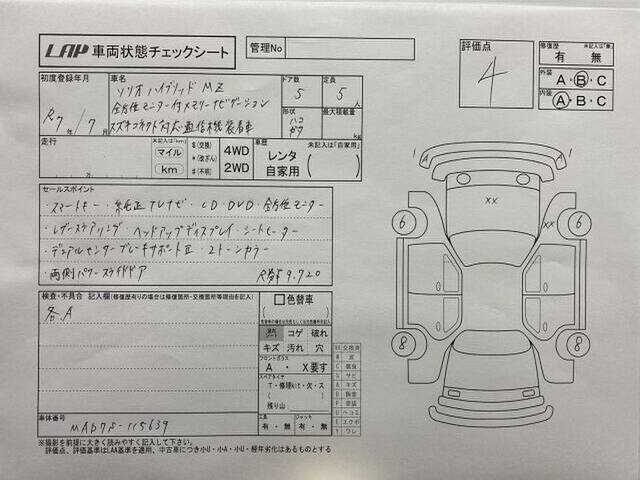 LAP 車両状態チェックシート
管理No
評価点
4
修復歴 未記入は「無」
有 ・ 無
外装
A・B・C
内装
A・B・C
初度登録年月
R7年/7月
車名
ソリオ ハイブリッド MZ
全方位モニター付メモリーナビゲーション
スズキコネクト対応通信機装着車
ドア数
5
定員
5人
形状
ハコ
最大積載量
kg
走行 未記入は「km」
マイル
km
万
$(交換)
*(改ざん)
#(不明)
4WD
2WD
車歴 未記入は「自家用」
レンタ
自家用
セールスポイント
・スマートキー ・純正TVナビ ・CD・DVD・全方位モニター
・レザーステアリング ・ヘッドアップディスプレイ ・シートヒーター
・デュアルセンサーブレーキサポートⅡ ・2トーンカラー
・両側パワースライドドア
検査・不具合 記入欄(修復歴有りの場合は修復箇所・交換箇所等理由を記入)
各A
色替車
シート
コゲ 破れ
キズ 汚れ 穴
フロントガラス
A ・ X要す
スペアタイヤ
T・修理kit・欠・ス
残り山
工具
有・無
ジャッキ
有・無
XX 交換済
X 要
C 腐食
S サビ
A キズ
B 鈑金
P 塗装
U ヘコミ
E エクボ
Y ワレ
車体番号
MAD7S-115639
※撮影を前提に大きく読みやすく記入して下さい。
評価点、評価基準はLAA基準を適用、中古車につき小U・小A・小U・経年劣化はあるものとする
1
A
A
1
XX
XX
6
6
8
8